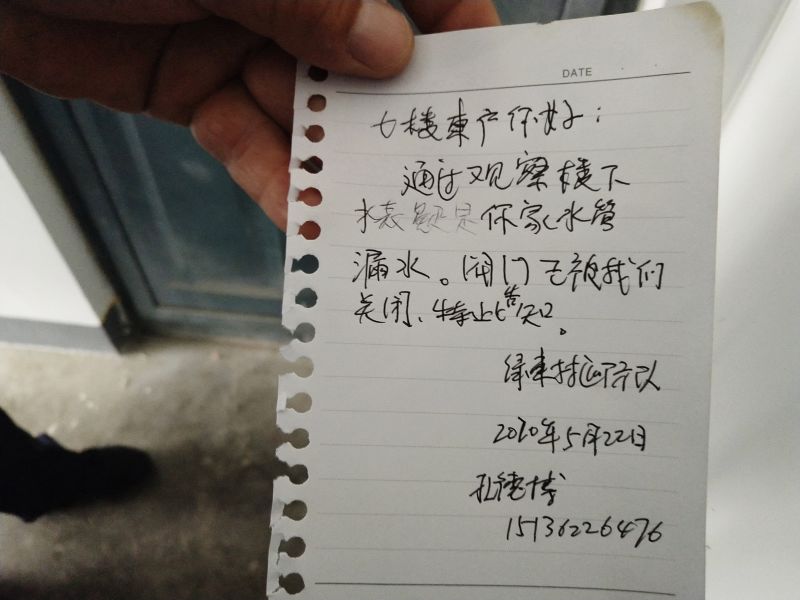 DATE
七楼东户你好:
通过观察楼下
水表疑是你家水管
漏水。阀门已被我们
关闭、特此告知。
绿东村巡防队
2020年5月22日
孔德博
15136226476